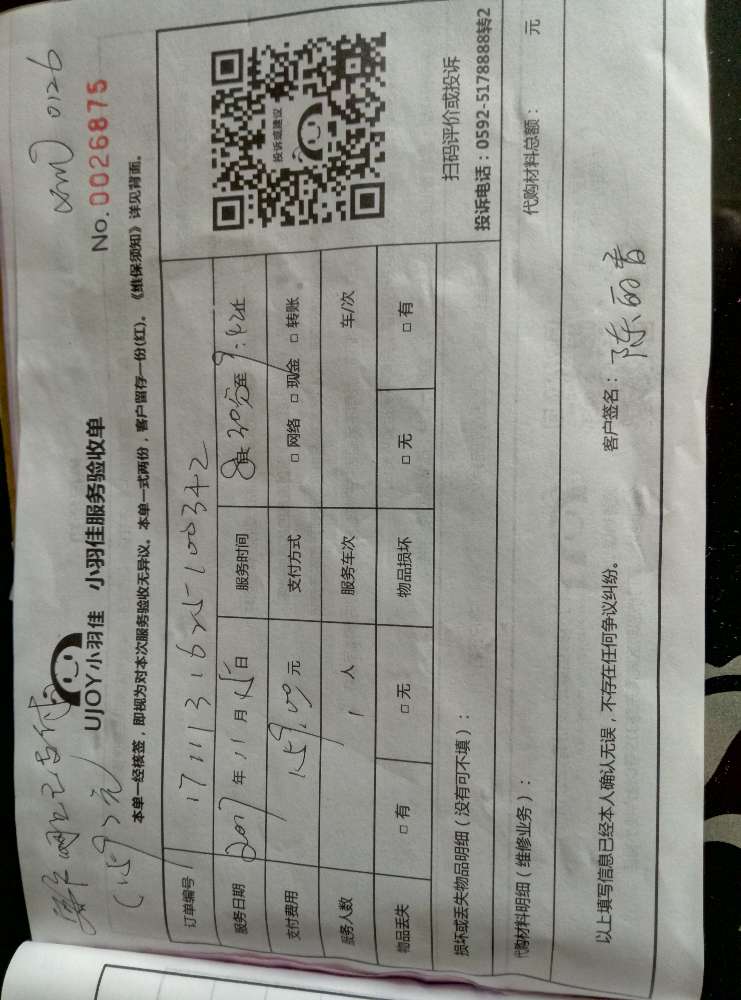 0126
(159元)
UJOY小羽佳 小羽佳服务验收单
No.0026875
本单一经核签，即视为对本次服务验收无异议。本单一式两份，客户留存一份(红)。《维保须知》详见背面。
订单编号
服务日期 2017年 11月 15日 服务时间 30分至
支付费用 159.00元 支付方式 □ 网络 □ 现金 □ 转账
服务人数 1 人 服务车次 车/次
物品丢失 □ 有 □ 无 物品损坏 □ 无 □ 有
投诉或建议
扫码评价或投诉
投诉电话：0592-5178888转2
损坏或丢失物品明细（没有可不填）：
代购材料明细（维修业务）： 代购材料总额： 元
以上填写信息已经本人确认无误，不存在任何争议纠纷。 客户签名：陈丽香